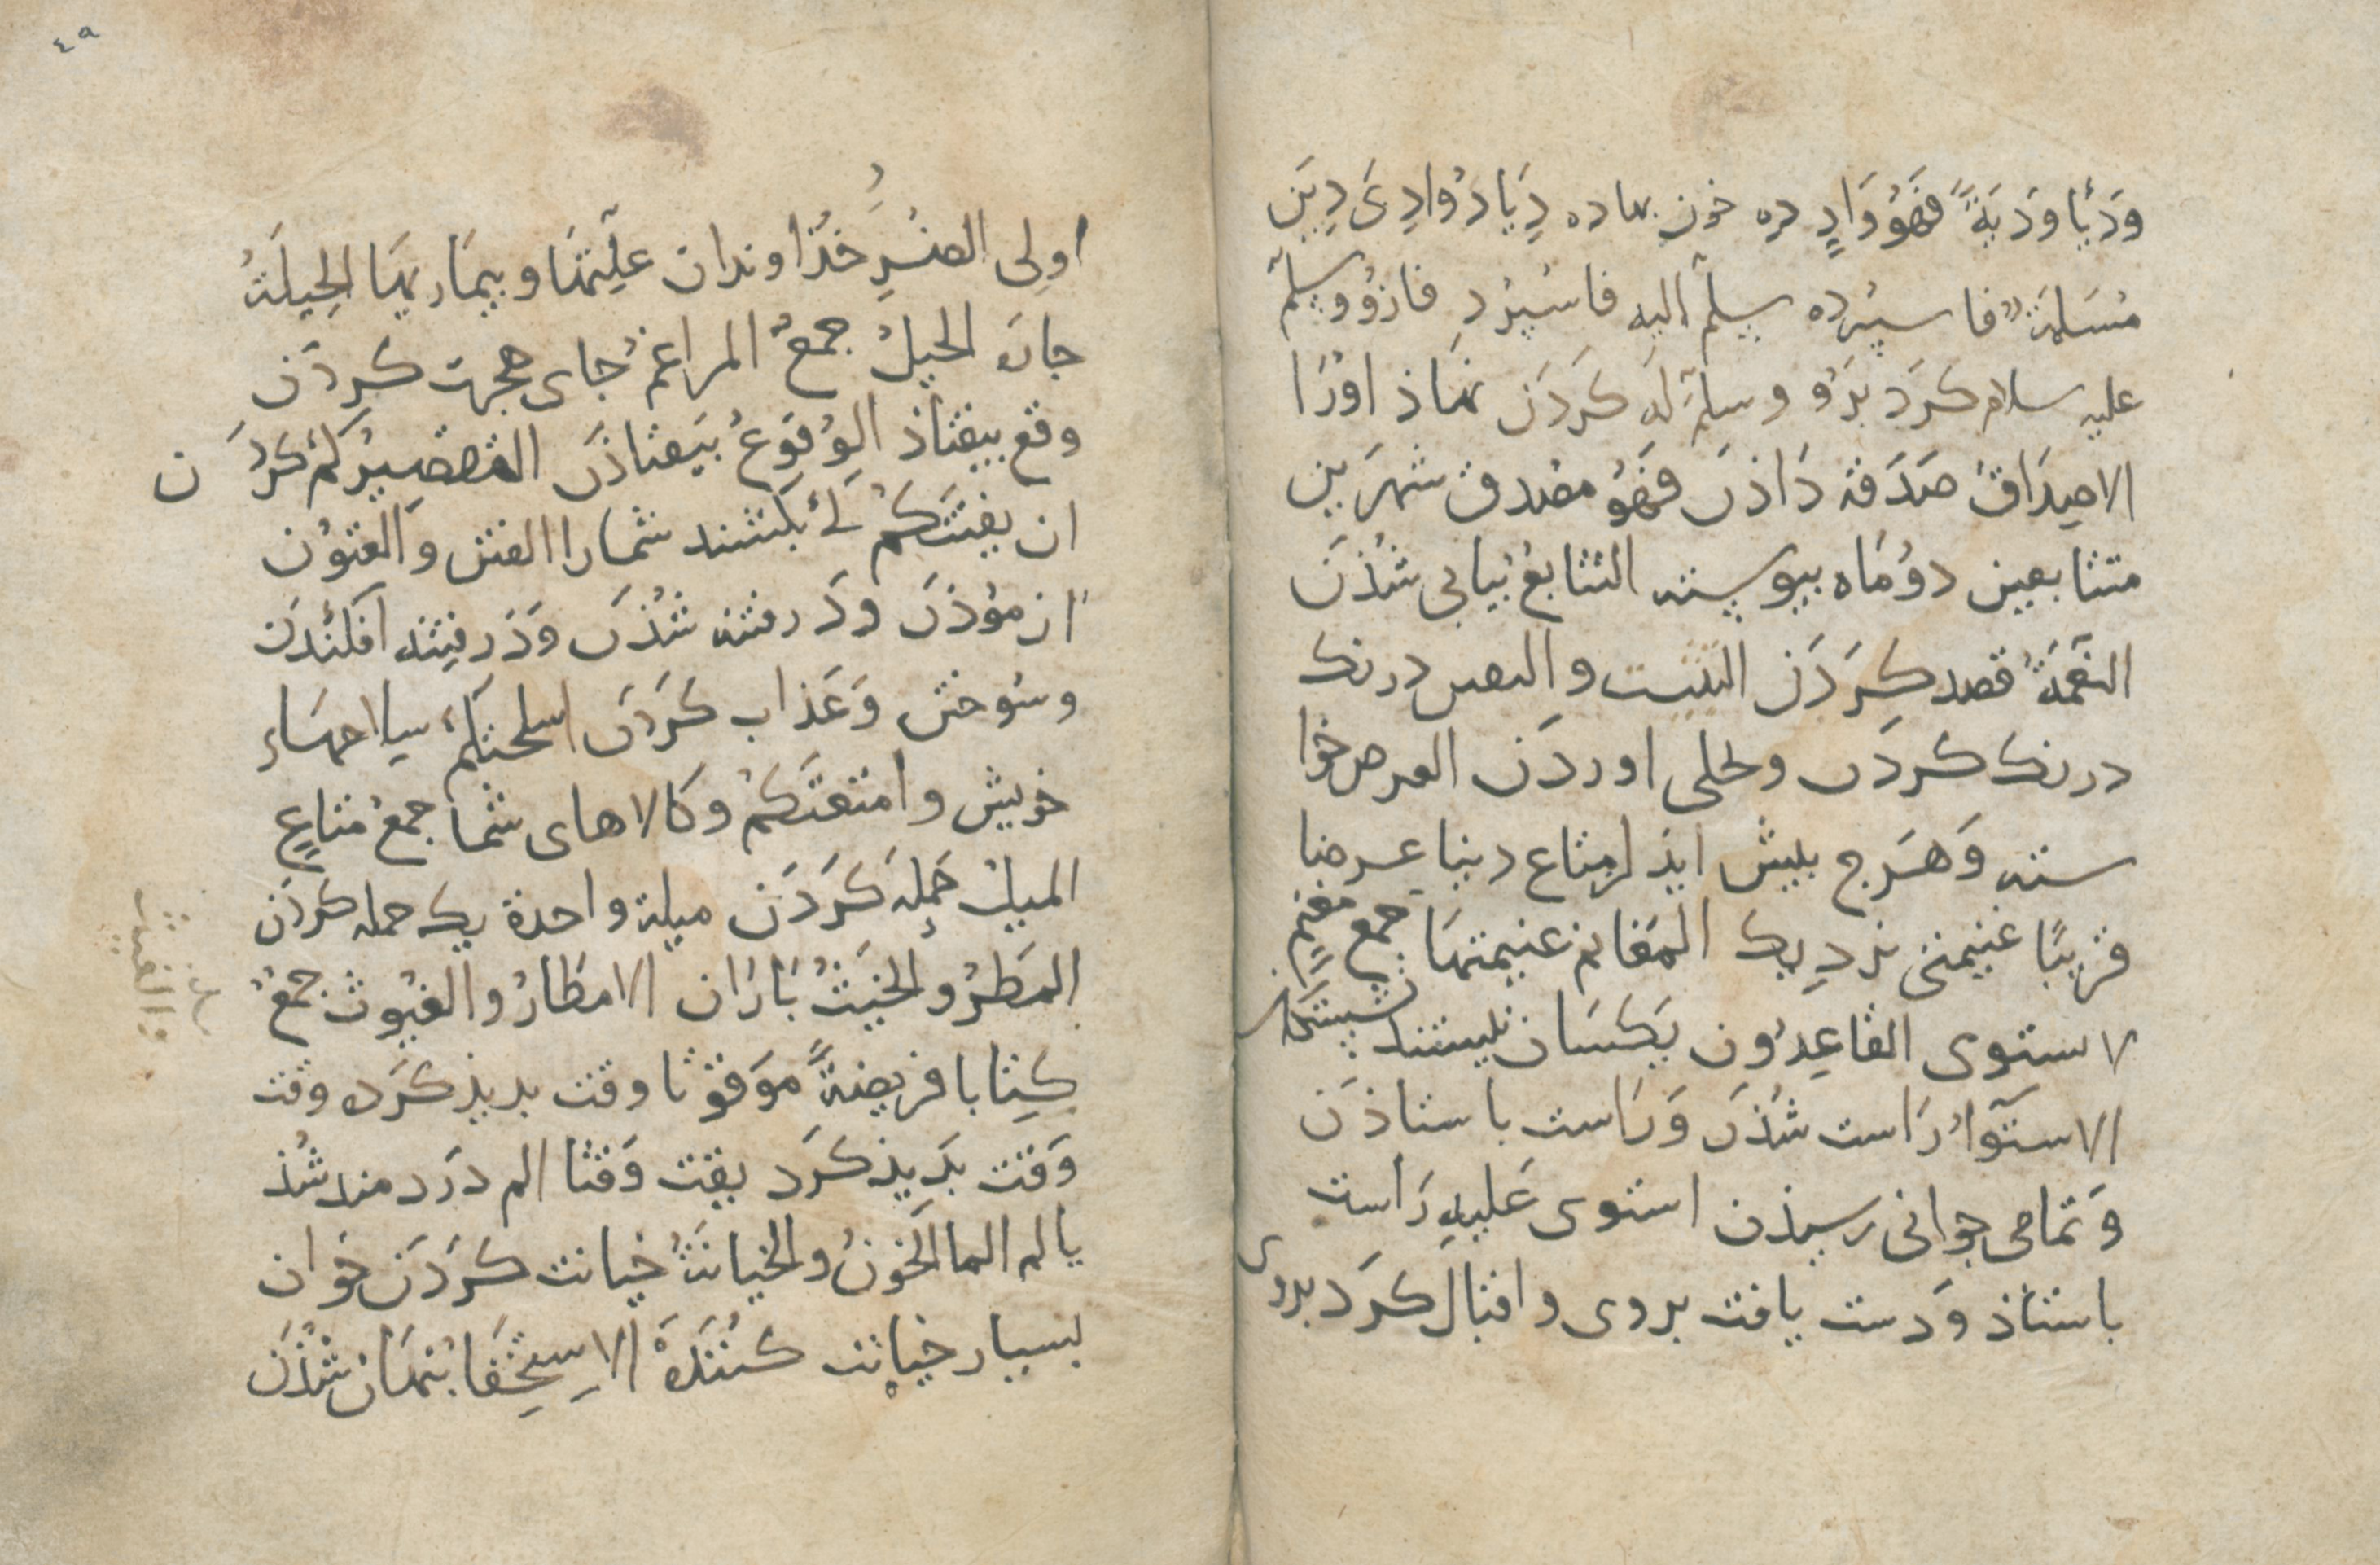 وَدْیًا ودَیَةً فَهُوَ وَادٍ دِه خون بها ده دِیَا دُوا دِیَ دِیَن
مُسَلمَة فا سپرده سلّم الیه فا سپرد فازو وسلّم
علیه سلام کرد برو وسلم له کردن نهاذ اورا
الاصِدَاقُ صَدَقه دَاذن فهُوَ مصدق شهرین
متتابعین دو ماه بپوسته التتابع بیابی شُذن
النقمَة قصد کردن التثبت و درنک
درنک کردن و اوردن العرض خوا
سته وَهَرج بیش ایذ از متاع دنیا عرضا
قریبًا غنیمتی نزدیک المغانم غنیمتها جمع مغنم
لا ستوی القاعِدُون یکسان نیستند نشستکان
الاستوآءُ رَاست شُذن وَرَاست باستاذن
وَتمامی جوانی رسیذن استوی عَلیهِ رَاست
باستاذ وَدست یافت بروی واقبال کرَد بروی
٤٩
اولِی الضرَرِ خذاوندان علّتهَا وبیمَاریهَا الحِیلَةُ
جان الحیلُ جمعُ المراغم جای هجرت کردَن
وقع بیفتاذ الوُقوعُ بیَفتاذن التقصیرُ کم کردن
ان یفتنکم کی بکشند شمارا الفتن والفتون
ازموذن ودرفتنه شُذن وَدَرفتنه افکندن
وسُوختن وَعَذاب کردن اسلحتکم سِلاحهَاءِ
خویش وامتعتکم وکالاهای شما جمعُ مَتاعٍ
المیلُ حَمله کَردَن میلة واحدة یک حمله کردن
المَطَرُ والغیثُ بَارَان الامطارُ والغیُوث جمعُ
والغیث
کِتابا فریضَةً مَوقوُتا وقت بدیذ کرَده وقت
وَقت بدَیذ کرَد یقت وَقتا الم دَردمند شُذ
یالم الما الخَونُ والخیانَةُ خیانت کردَن خوان
بسیار خیانت کنُندَهَ الاِستِخفَا پنهَان شُذن